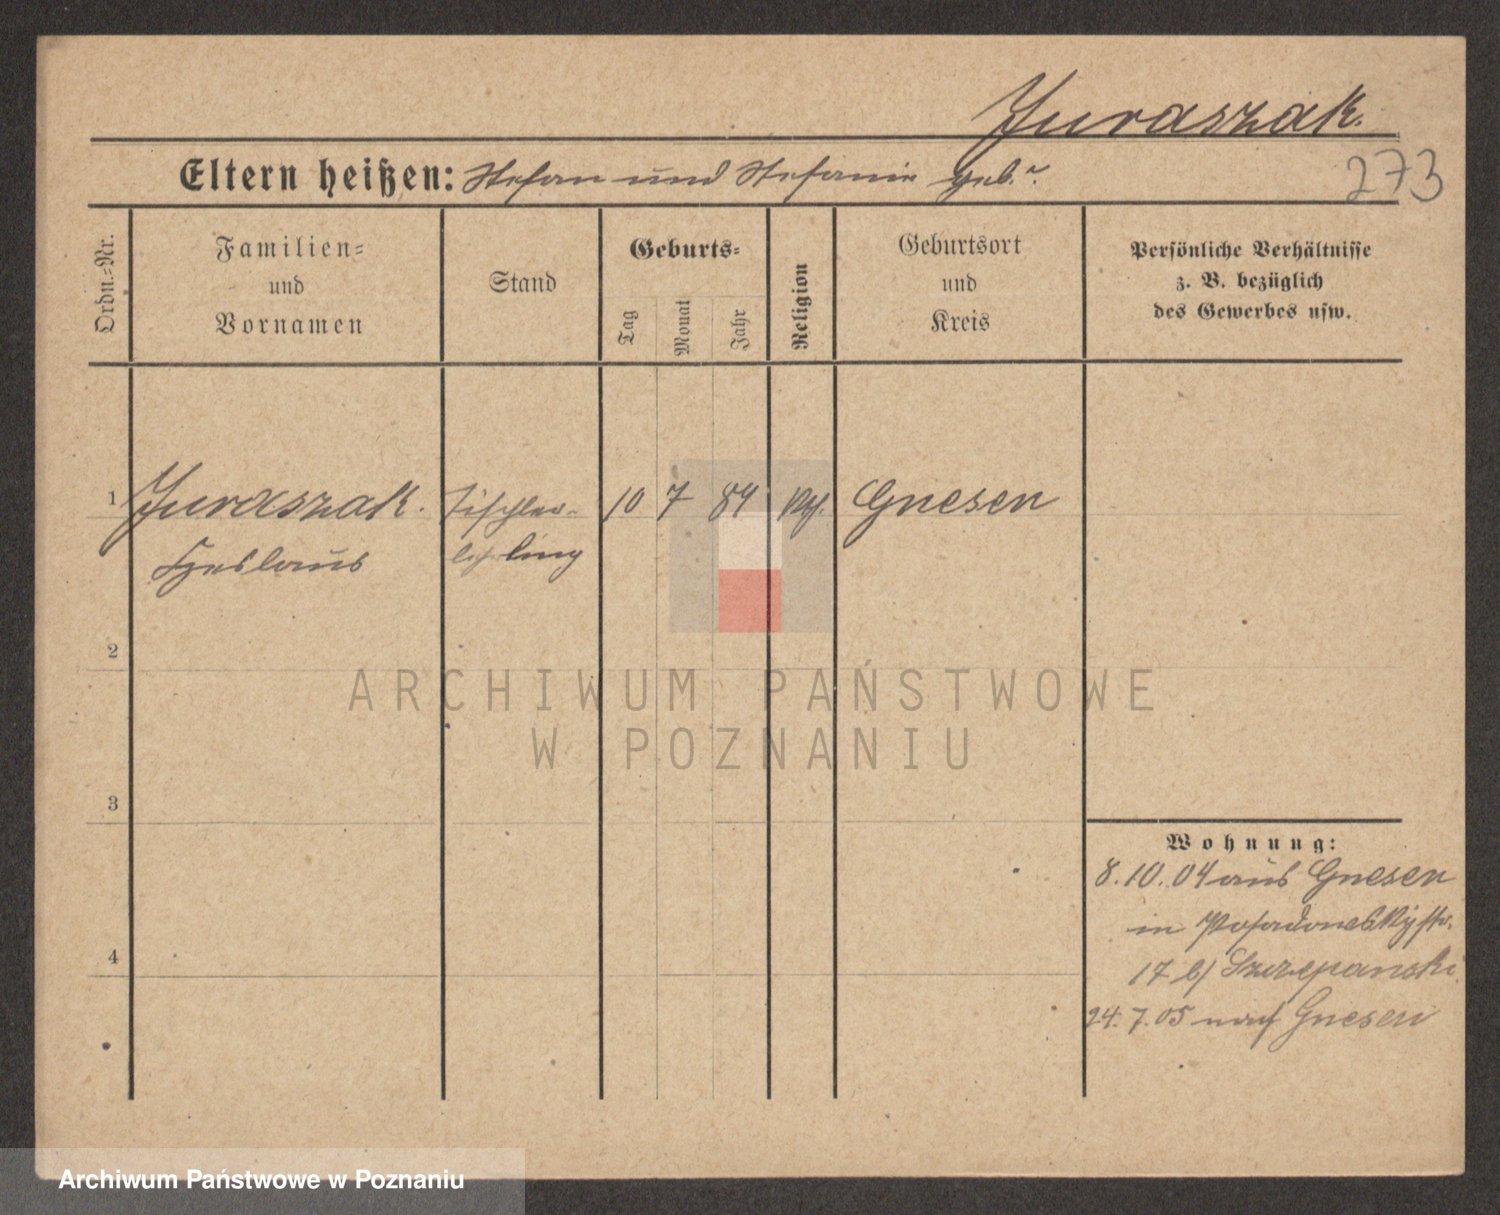 Juraszak.
Eltern heißen: Stefan und Stefanie geb. ~.
273
Ordn.=Nr.
Familien=
und
Vornamen
Stand
Geburts=
Tag
Monat
Jahr
Religion
Geburtsort
und
Kreis
Persönliche Verhältnisse
z. B. bezüglich
des Gewerbes usw.
1 Juraszak. Tischler- 10 7 84 Gnesen
Czeslaus lehrling
2
3
4
Wohnung:
8.10.04 aus Gnesen
in Posadowskystr.
17 b/ Szczepanski
24.7.05 nach Gnesen
ARCHIWUM PAŃSTWOWE
W POZNANIU
Archiwum Państwowe w Poznaniu